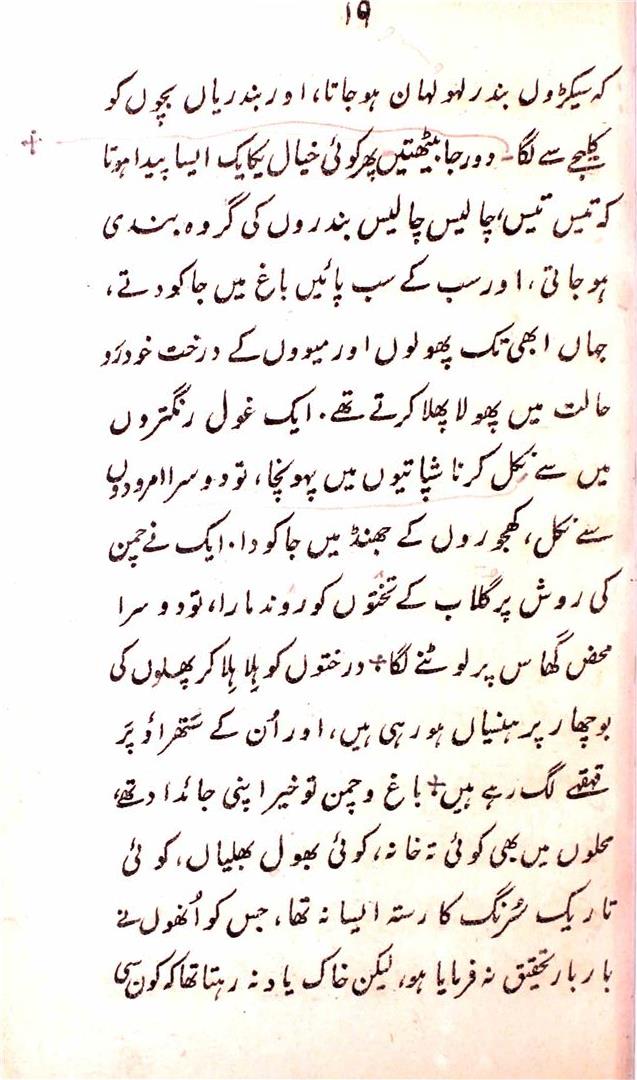 ۱۹
کہ سیکڑوں بندر لہولہان ہو جاتا، اور بندریاں بچوں کو
کلیجے سے لگا۔ دور جا بیٹھتیں پھر کوئی خیال یکایک ایسا پیدا ہوتا
کہ تیس تیس، چالیس چالیس بندروں کی گروہ بندی
ہو جاتی، اور سب کے سب پائیں باغ میں جا کودتے،
جہاں ابھی تک پھولوں اور میووں کے درخت خودرَو
حالت میں پھولا پھلا کرتے تھے۔ ایک غول رنگتروں
میں سے نکل کر ناشپاتیوں میں پہونچا، تو دوسرا امرودوں
سے نکل، کھجوروں کے جھنڈ میں جا کودا۔ ایک نے چمن
کی روش پر گلاب کے تختوں کو روند مارا، تو دوسرا
محض گھاس پر لوٹنے لگا + درختوں کو ہِلا ہِلا کر پھلوں کی
بوچھار پر ہنسیاں ہو رہی ہیں، اور اُن کے ستھراؤ پَر
قہقہے لگ رہے ہیں + باغ و چمن تو خیر اپنی جائداد تھے،
محلوں میں بھی کوئی تہ خانہ، کوئی بھول بھلیاں، کوئی
تاریک سُرنگ کا رستہ ایسا نہ تھا، جس کو اُنھوں نے
بار بار تحقیق نہ فرمایا ہو، لیکن خاک یاد نہ رہتا تھا کہ کون سی